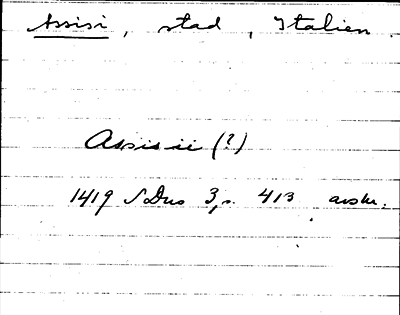 Assisi, stad, Italien.
Assisii (?)
1419 SDns 3, s. 413 avskr.